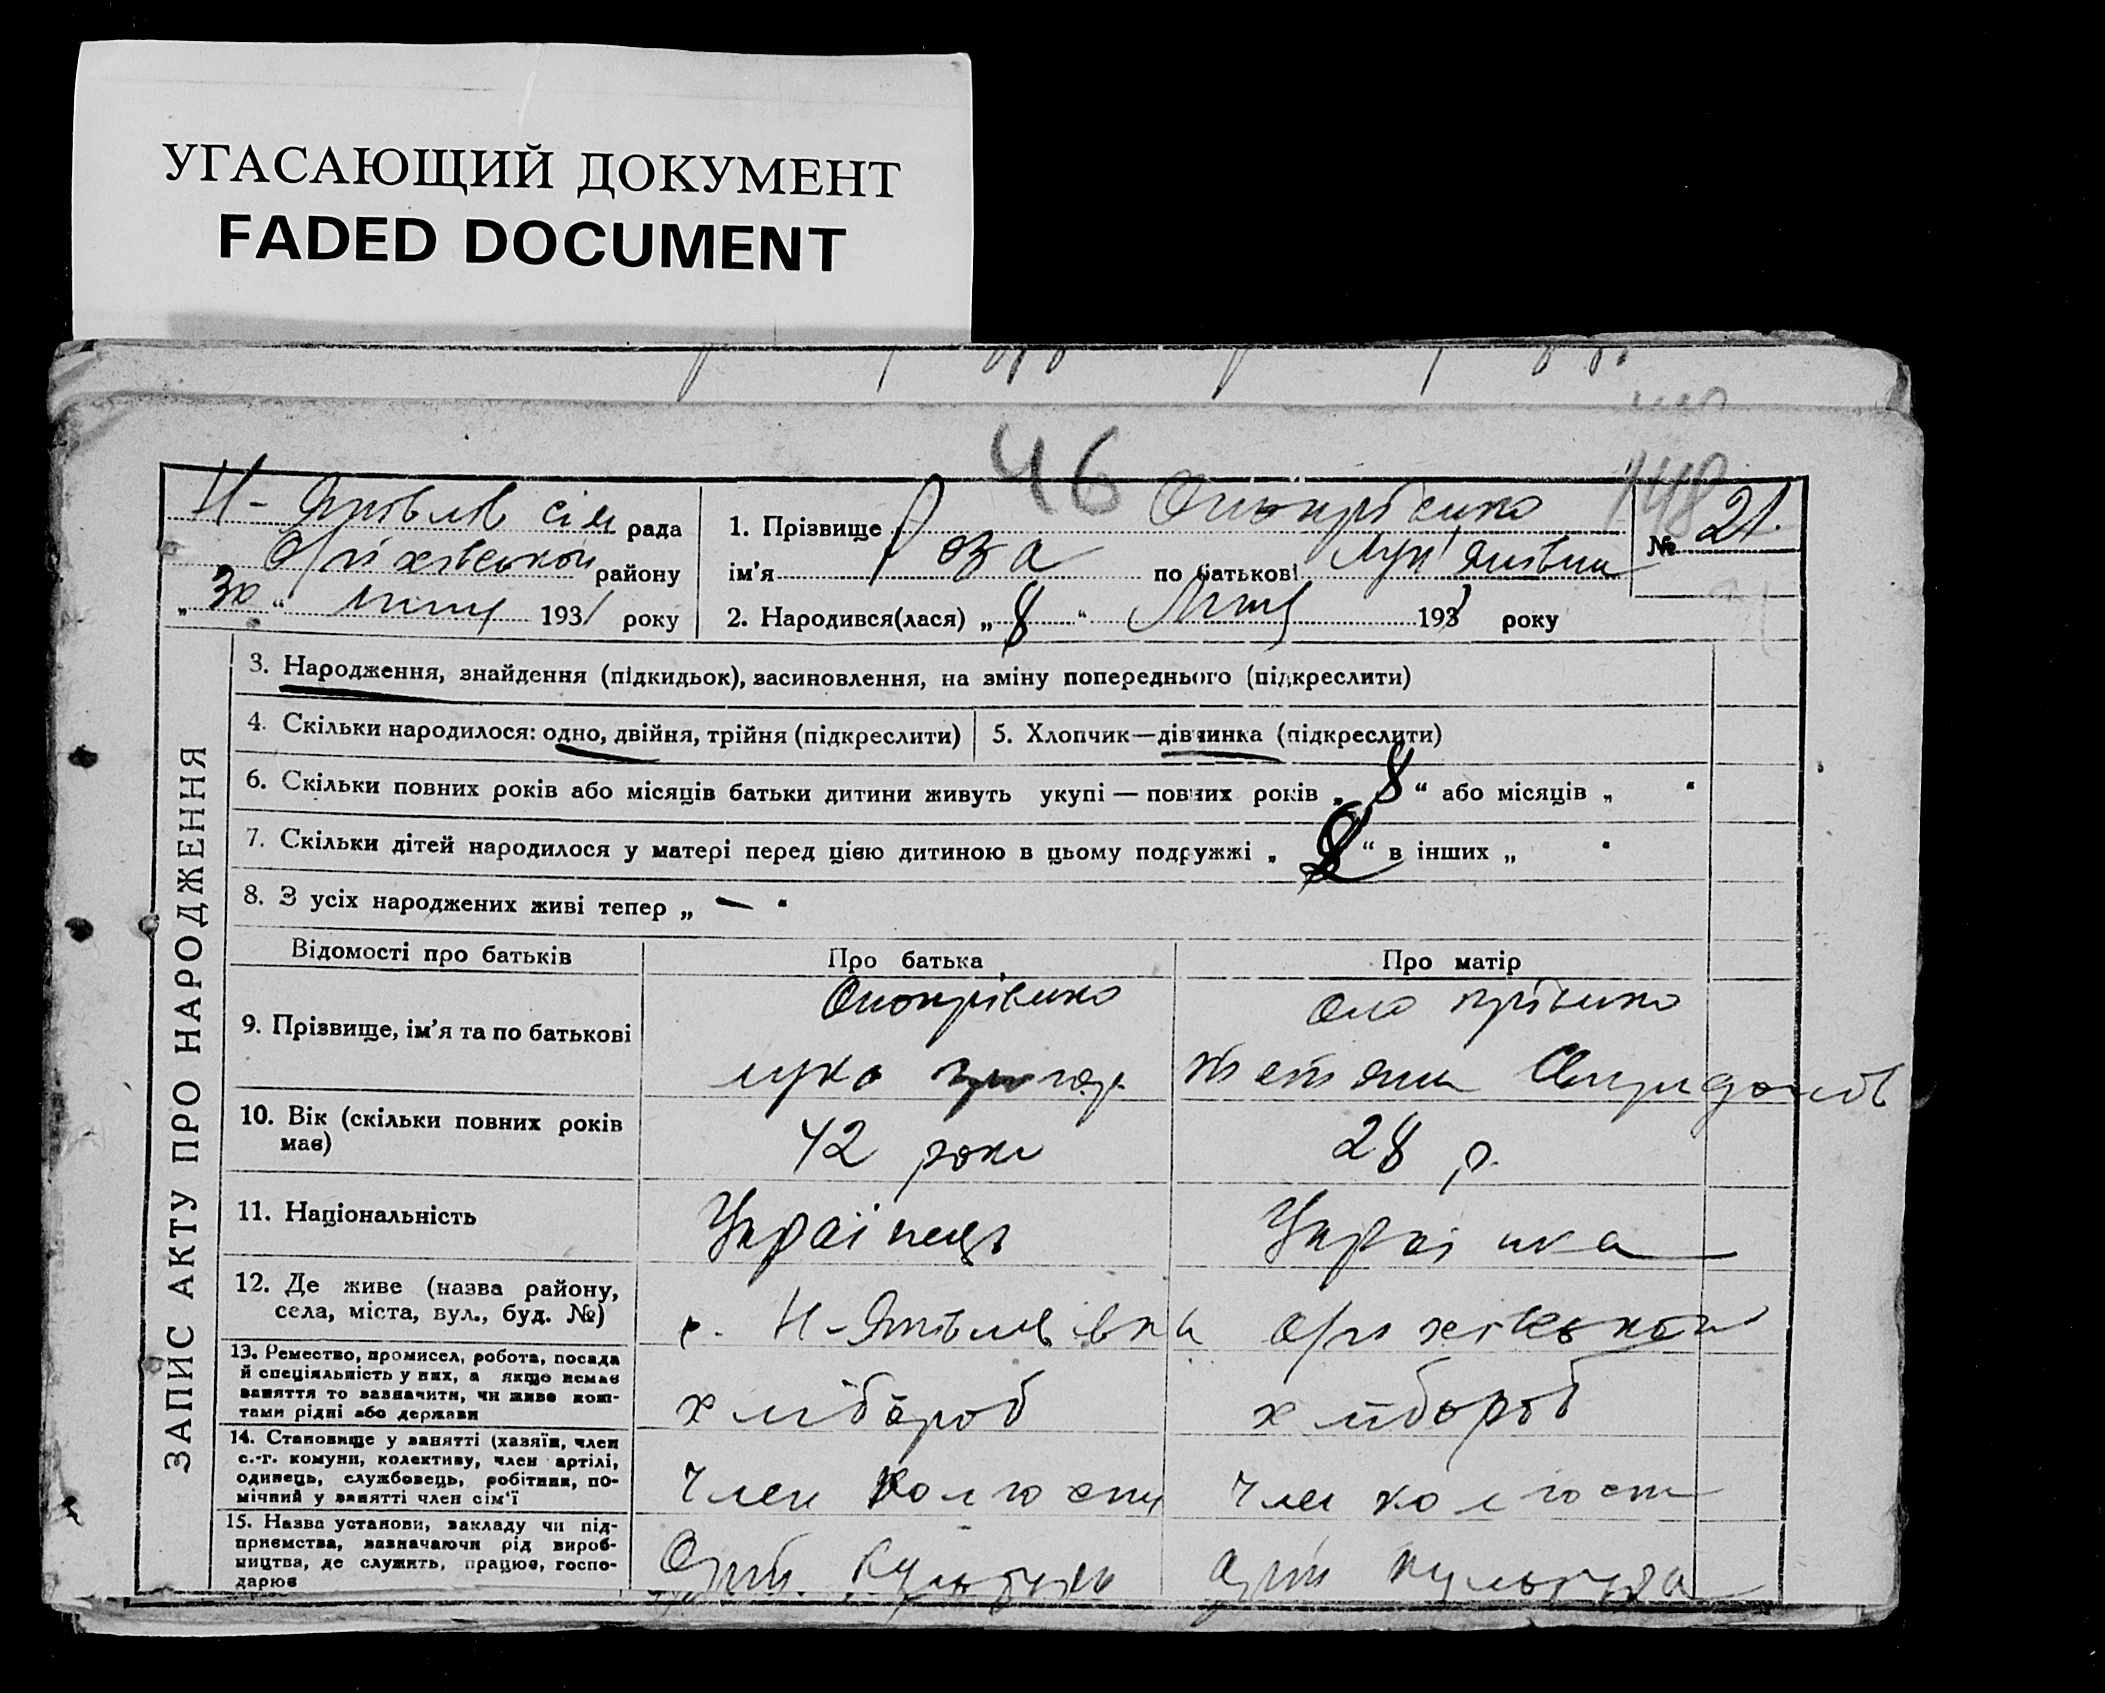 УГАСАЮЩИЙ ДОКУМЕНТ
FADED DOCUMENT
46
148
Н-Яковлів сіл рада
Оріхівської району
„30“ 1931 року
1. Прізвище Онопрієнко
ім'я Роза по батькові
№ 21
2. Народився(лася) „8“ 1931 року
ЗАПИС АКТУ ПРО НАРОДЖЕННЯ
3. Народження, знайдення (підкидьок), засиновлення, на зміну попереднього (підкреслити)
4. Скільки народилося: одно, двійня, трійня (підкреслити)
5. Хлопчик—дівчинка (підкреслити)
6. Скільки повних років або місяців батьки дитини живуть укупі — повних років „8“ або місяців „ “
7. Скільки дітей народилося у матері перед цією дитиною в цьому подружжі „ “ в інших „ “
8. З усіх народжених живі тепер „ — “
Відомості про батьків Про батька Про матір
9. Прізвище, ім'я та по батькові
Онопрієнко Онопрієнко
Лука Тетяна Спиридонов
10. Вік (скільки повних років має)
42 роки 28 р.
11. Національність
Українець Українка
12. Де живе (назва району, села, міста, вул., буд. №)
с. Н-Яковлівка Оріхівського
13. Ремество, промисел, робота, посада й спеціяльність у них, а якщо немає заняття то зазначити, чи живе коштами рідні або держави
хлібороб хлібороб
14. Становище у занятті (хазяїн, член с.-г. комуни, колективу, член артілі, одинець, службовець, робітник, помічний у занятті член сім'ї
Член колгоспу член колгоспу
15. Назва установи, закладу чи підприємства, зазначаючи рід виробництва, де служить, працює, господарює
культура культура